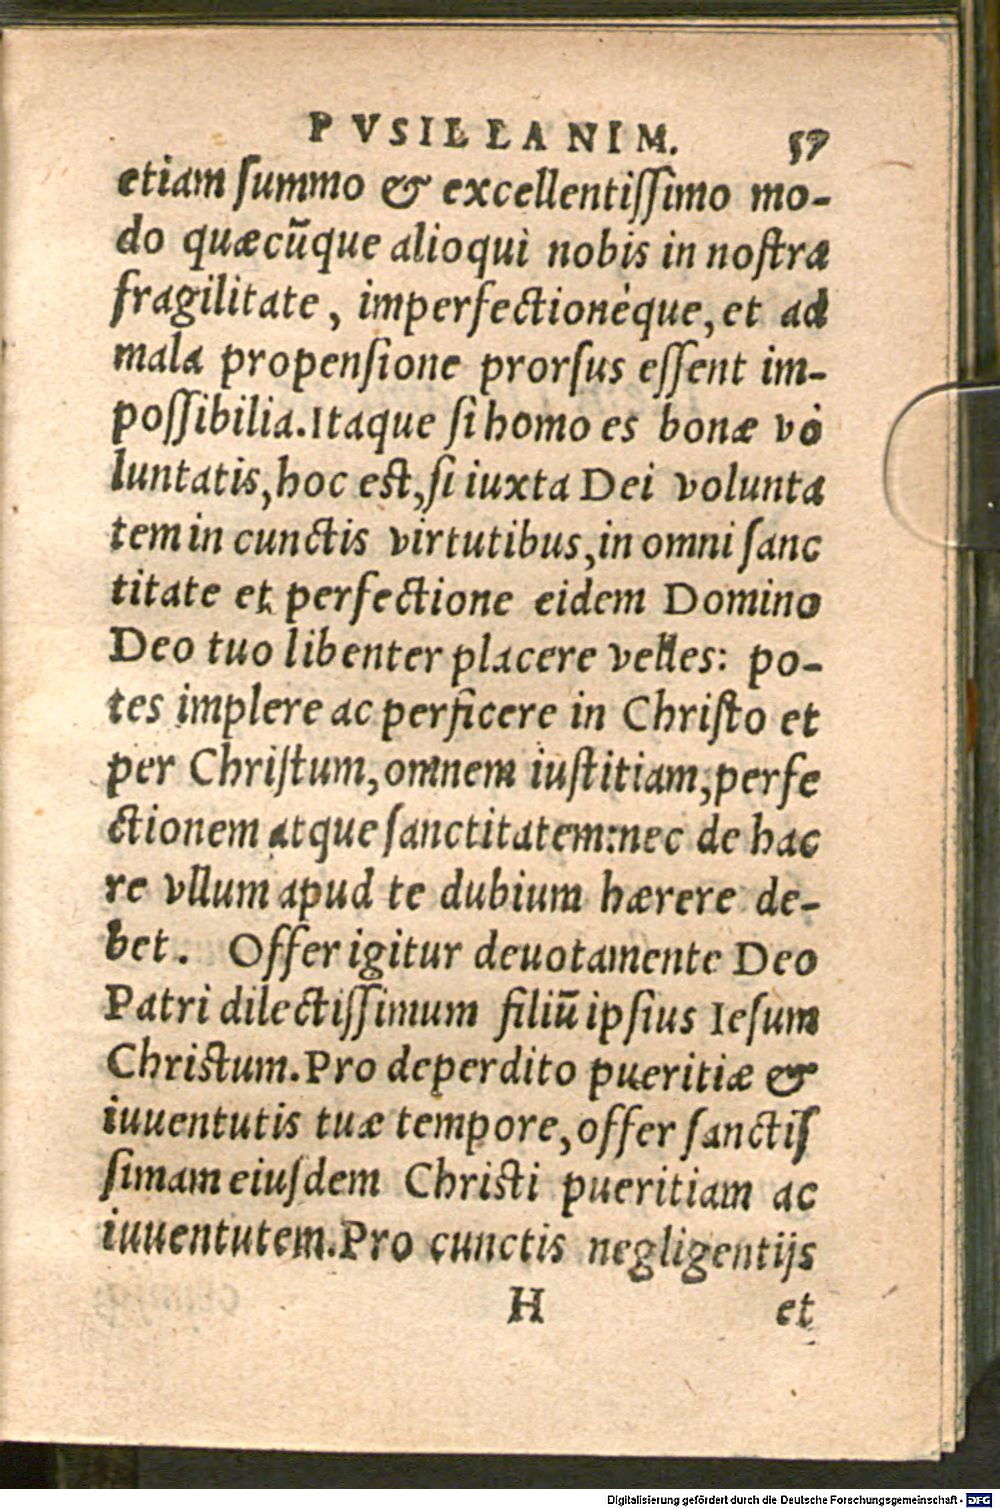 PVSILLANIM. 57
etiam ſummo & excellentiſſimo mo-
do quæcũque alioqui nobis in noſtra
fragilitate, imperfectionéque, et ad
mala propenſione prorſus eſſent im-
poſſibilia. Itaque ſi homo es bonæ vo
luntatis, hoc eſt, ſi iuxta Dei volunta
tem in cunctis virtutibus, in omni ſanc
titate et perfectione eidem Domino
Deo tuo libenter placere velles: po-
tes implere ac perficere in Chriſto et
per Chriſtum, omnem iuſtitiam, perfe
ctionem atque ſanctitatem: nec de hac
re vllum apud te dubium hærere de-
bet. Offer igitur deuotamente Deo
Patri dilectiſſimum filiũ ipſius Ieſum
Chriſtum. Pro deperdito pueritiæ &
iuuentutis tuæ tempore, offer ſanctiſ
ſimam eiuſdem Chriſti pueritiam ac
iuuentutem. Pro cunctis negligentijs
H et
Digitalisierung gefördert durch die Deutsche Forschungsgemeinschaft - DFG